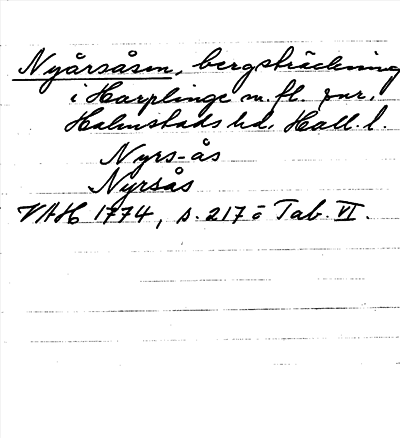 Nyårsåsen, bergsträckning
i Harplinge m. fl. snr.
Halmstads hd. Hall. l.
Nyrs-ås
Nyrsås
VAH 1774, s. 217 o Tab. VI.